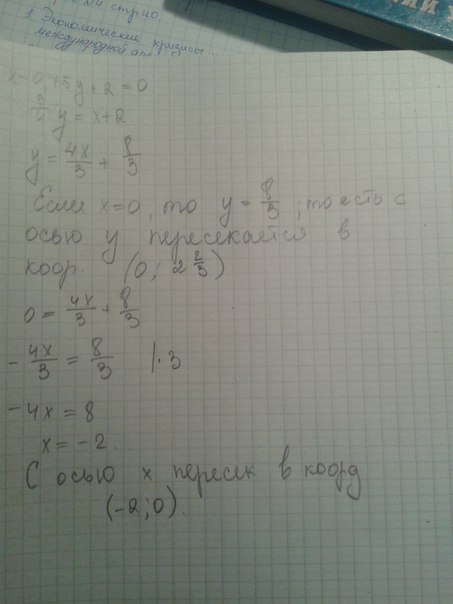 1. Экономические кризисы.
международной
x - 0,75y + 2 = 0
3/4 y = x + 2
y = 4x/3 + 8/3
Если x=0, то y = 8/3; то есть с
осью y пересекается в
коор. (0; 2 2/3)
0 = 4x/3 + 8/3
- 4x/3 = 8/3 | · 3
-4x = 8
x = -2.
С осью x пересек в коорд
(-2; 0).